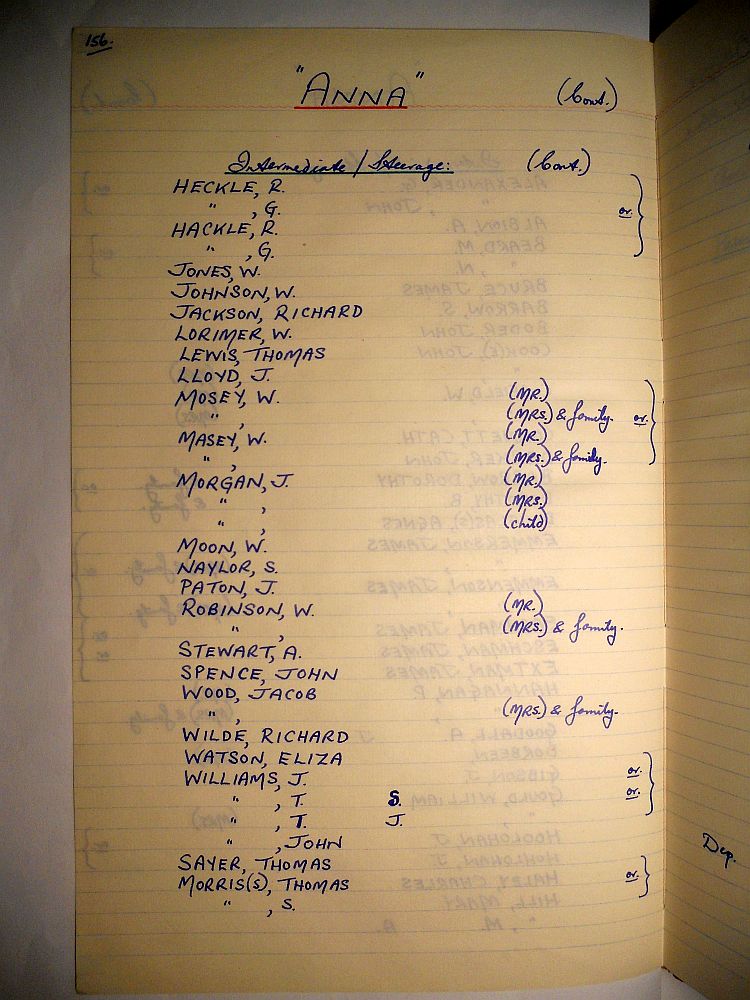 156.
"ANNA" (Cont.)
Intermediate / Steerage: (Cont.)
HECKLE, R.
" , G. or
HACKLE, R.
" , G.
JONES, W.
JOHNSON, W.
JACKSON, RICHARD
LORIMER, W.
LEWIS, THOMAS
LLOYD, J.
MOSEY, W. (MR.)
" , (MRS.) & family. or
MASEY, W. (MR.)
" , (MRS.) & family.
MORGAN, J. (MR.)
" , (MRS.)
" , (child)
MOON, W.
NAYLOR, S.
PATON, J.
ROBINSON, W. (MR.)
" , (MRS.) & family.
STEWART, A.
SPENCE, JOHN
WOOD, JACOB
" , (MRS.) & family.
WILDE, RICHARD
WATSON, ELIZA
WILLIAMS, J. or
" , T. S. or
" , T. J.
" , JOHN
SAYER, THOMAS
MORRIS(S), THOMAS or
" , S.
Dep.